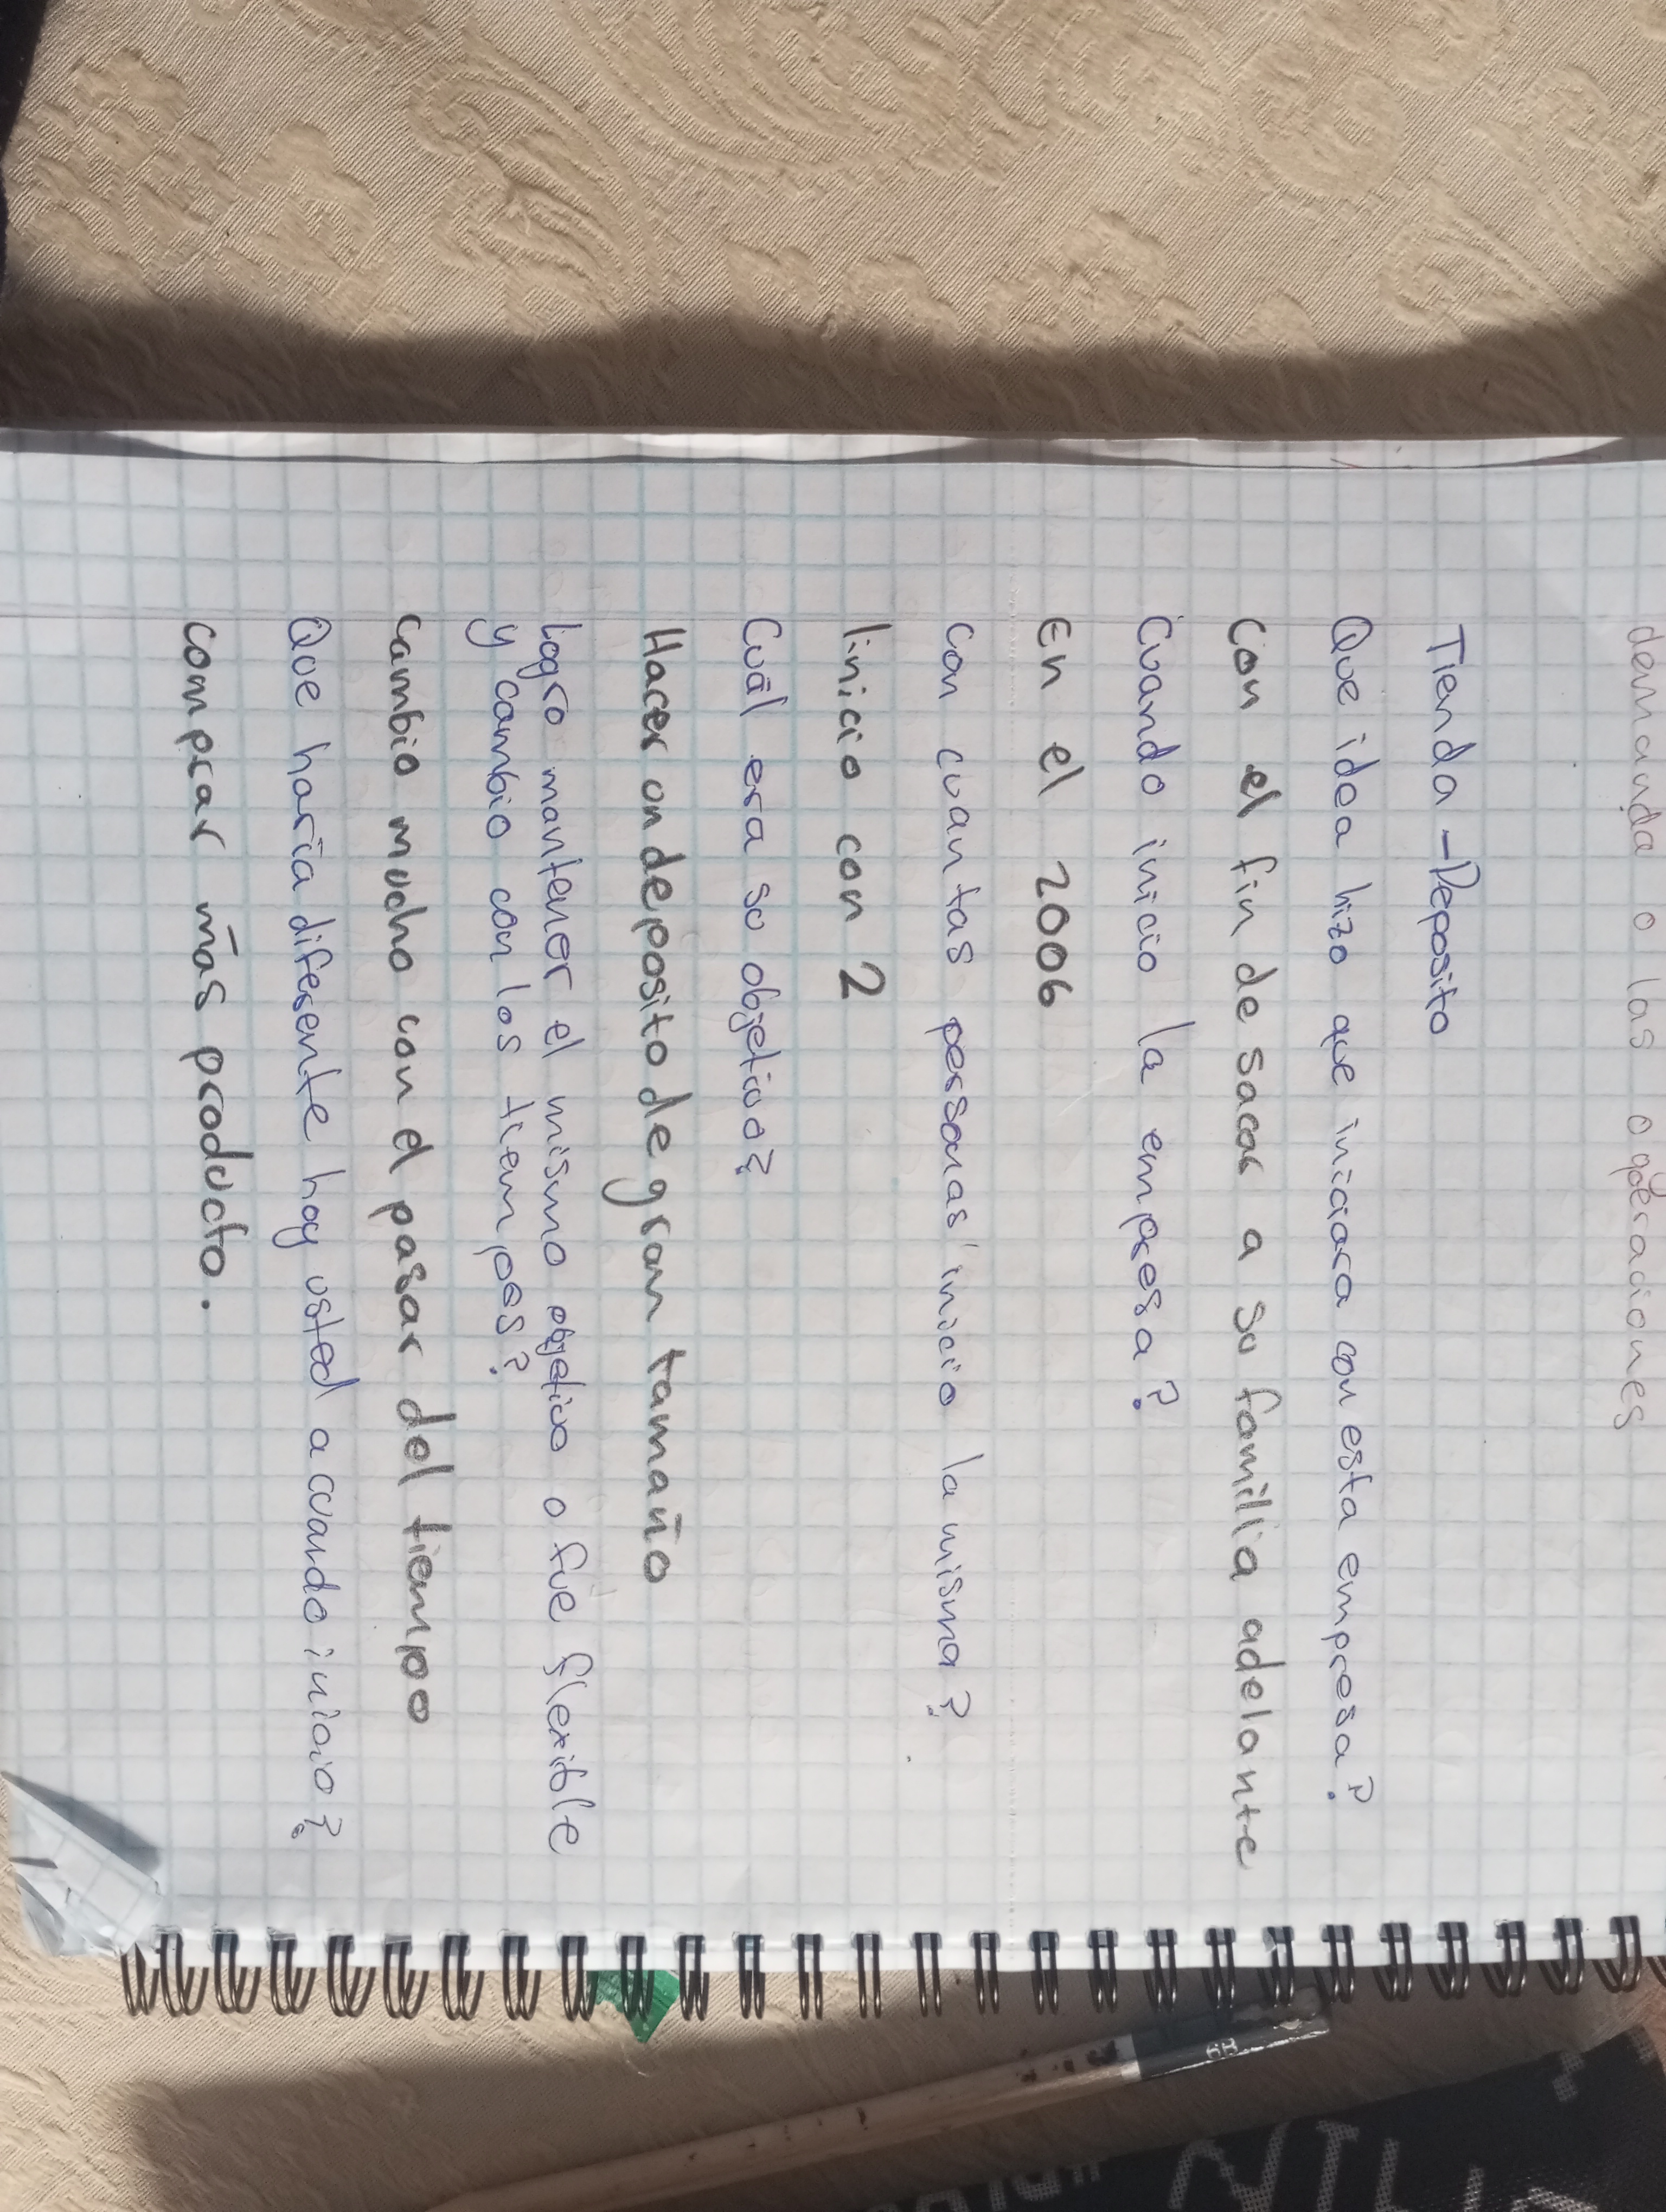 demanda o las operaciones
Tienda - Deposito
Que idea hizo que iniciara con esta empresa?
Con el fin de sacar a su familia adelante
Cuando inicio la empresa?
En el 2006
Con cuantas personas inicio la misma?
Iinicio con 2
Cuál era su objetivo?
Hacer un deposito de gran tamaño
Logro mantener el mismo objetivo o fue flexible
y cambio con los tiempos?
Cambio mucho con el pasar del tiempo
Que haría diferente hoy usted a cuando inicio?
Comprar más producto.
6B